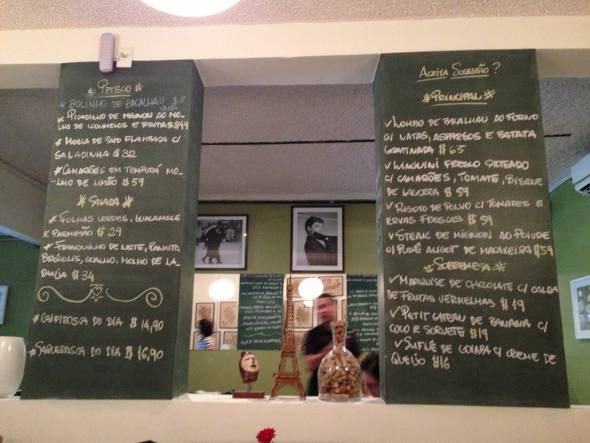 Petisco
* Bolinho de Bacalhau
* Picadinho de mignon ao mo-
lho de cogumelos e fritas $49
* Moela de pato flambada c/
saladinha $32
* Camarões em tempurá mo-
lho de limão $59
Salada
* Folhas verdes, guacamole
e parmesão $29
* Franguinho de leite, palmito,
brócolis, coalho, molho de la-
ranja $34
* Caipirosca do dia $14,90
* Saquerosca do dia $16,90
Aceita Sugestão?
* Principal *
✓ Lombo de bacalhau ao forno
c/ natas, aspargos e batata
gratinada $65
✓ Linguini fresco salteado
c/ camarões, tomate, bisque
de lagosta $59
✓ Risoto de polvo c/ tomates e
ervas frescas $59
✓ Steak de mignon ao poivre
c/ purê aligot de macaxeira $59
* Sobremesa *
✓ Marquise de chocolate c/ calda
de frutas vermelhas $19
✓ Petit gateau de banana c/
coco e sorvete $19
✓ Suflê de goiaba c/ creme de
queijo $16